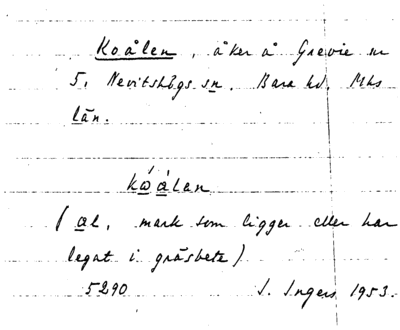 Koålen, åker å Grevie nr
5, Nevitshögs sn. Bara hd. Mhs
län.
kώålan
(al, mark som ligger eller har
legat i gräsbete)
5290 I. Ingers 1953.